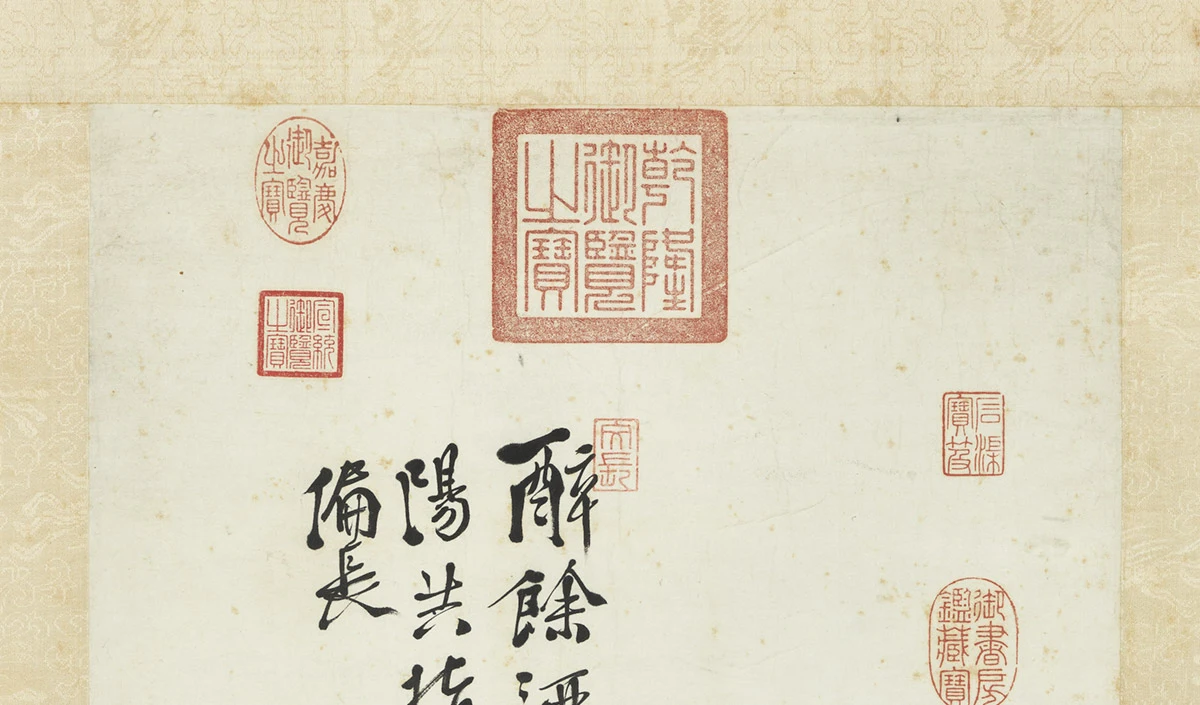 石渠寶笈
御書房鑑藏寶
乾隆御覽之寶
醉餘
陽共
偏長
嘉慶御覽之寶
宣統御覽之寶